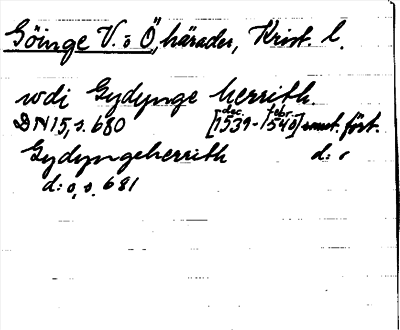 Göinge V. o Ö, härader, Krist. l.
wdi Gydynge herrith.
DN 15, s. 680 [dec. 1539 - febr. 1540] samt. fört.
Gydyngeherrith d:o
d:o, s. 681